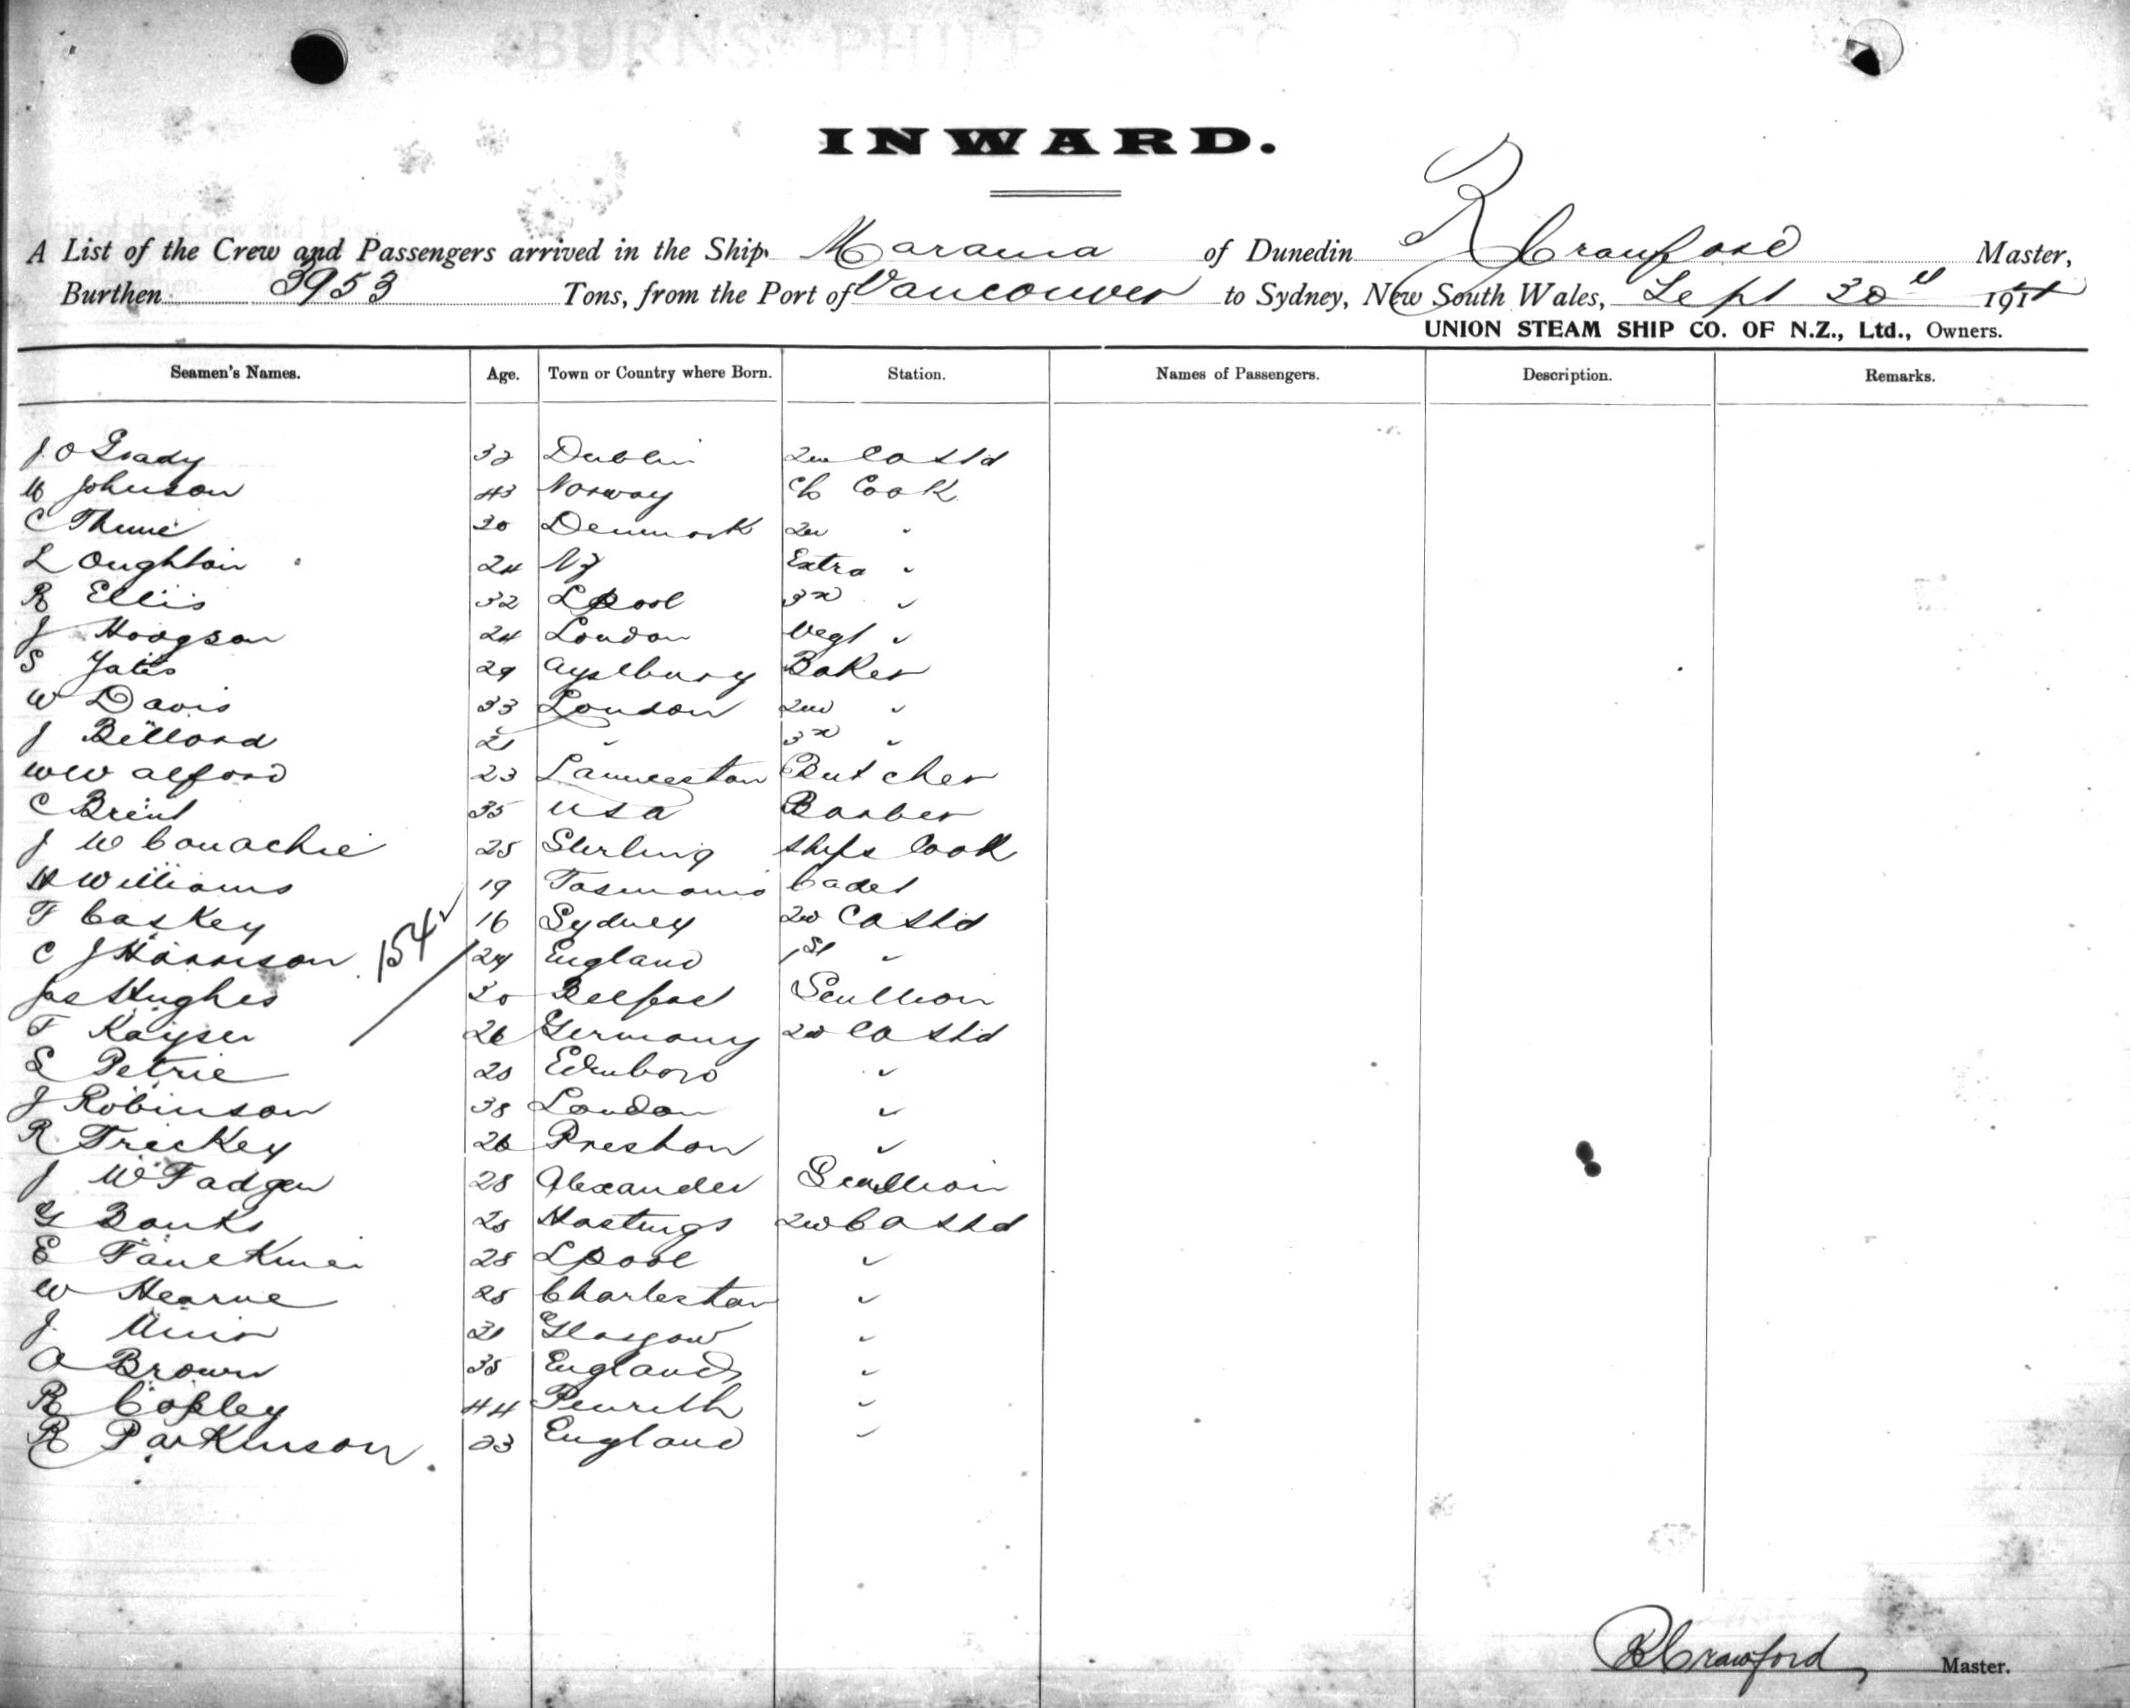 INWARD.
A List of the Crew and Passengers arrived in the Ship Marama of Dunedin R Crawford Master,
Burthen 3953 Tons, from the Port of Vancouver to Sydney, New South Wales, Sept 30th 1911
UNION STEAM SHIP CO. OF N.Z., Ltd., Owners.
Seamen's Names. Age. Town or Country where Born. Station. Names of Passengers. Description. Remarks.
J O Grady 32 Dublin 2nd Cl Std
Johnson 43 Norway Ch Cook
C Thune 30 Denmark 2nd "
L Oughton 24 NZ Extra "
R Ellis 32 Lpool 3rd "
J Hodgson 24 London Vegt "
S Yates 29 Ayslbury Baker
W Davis 33 London 2nd "
J Billord 21 " 3rd "
W W Alford 23 Launceston Butcher
C Brent 35 USA Barber
J McConachie 25 Sterling Ships Cook
H Williams 19 Tasmania Cadet
F Caskey 16 Sydney 2nd Cl Std
C J Harrison 24 England 1st "
154
Jas Hughes 30 Belfast Scullion
F Kayser 26 Germany 2nd Cl Std
Petrie Edinboro "
J Robinson 38 London "
R Trickey 26 Preston "
J McFadgen 28 Alexander Scullion
G Banks Hastings 2nd Cl Std
E Faulkner 28 Lpool "
W Hearne 25 Charleston "
J Muir 31 Glasgow "
A Brown 35 England "
R Copley 44 Penrith "
R Parkinson 23 England "
R Crawford Master.